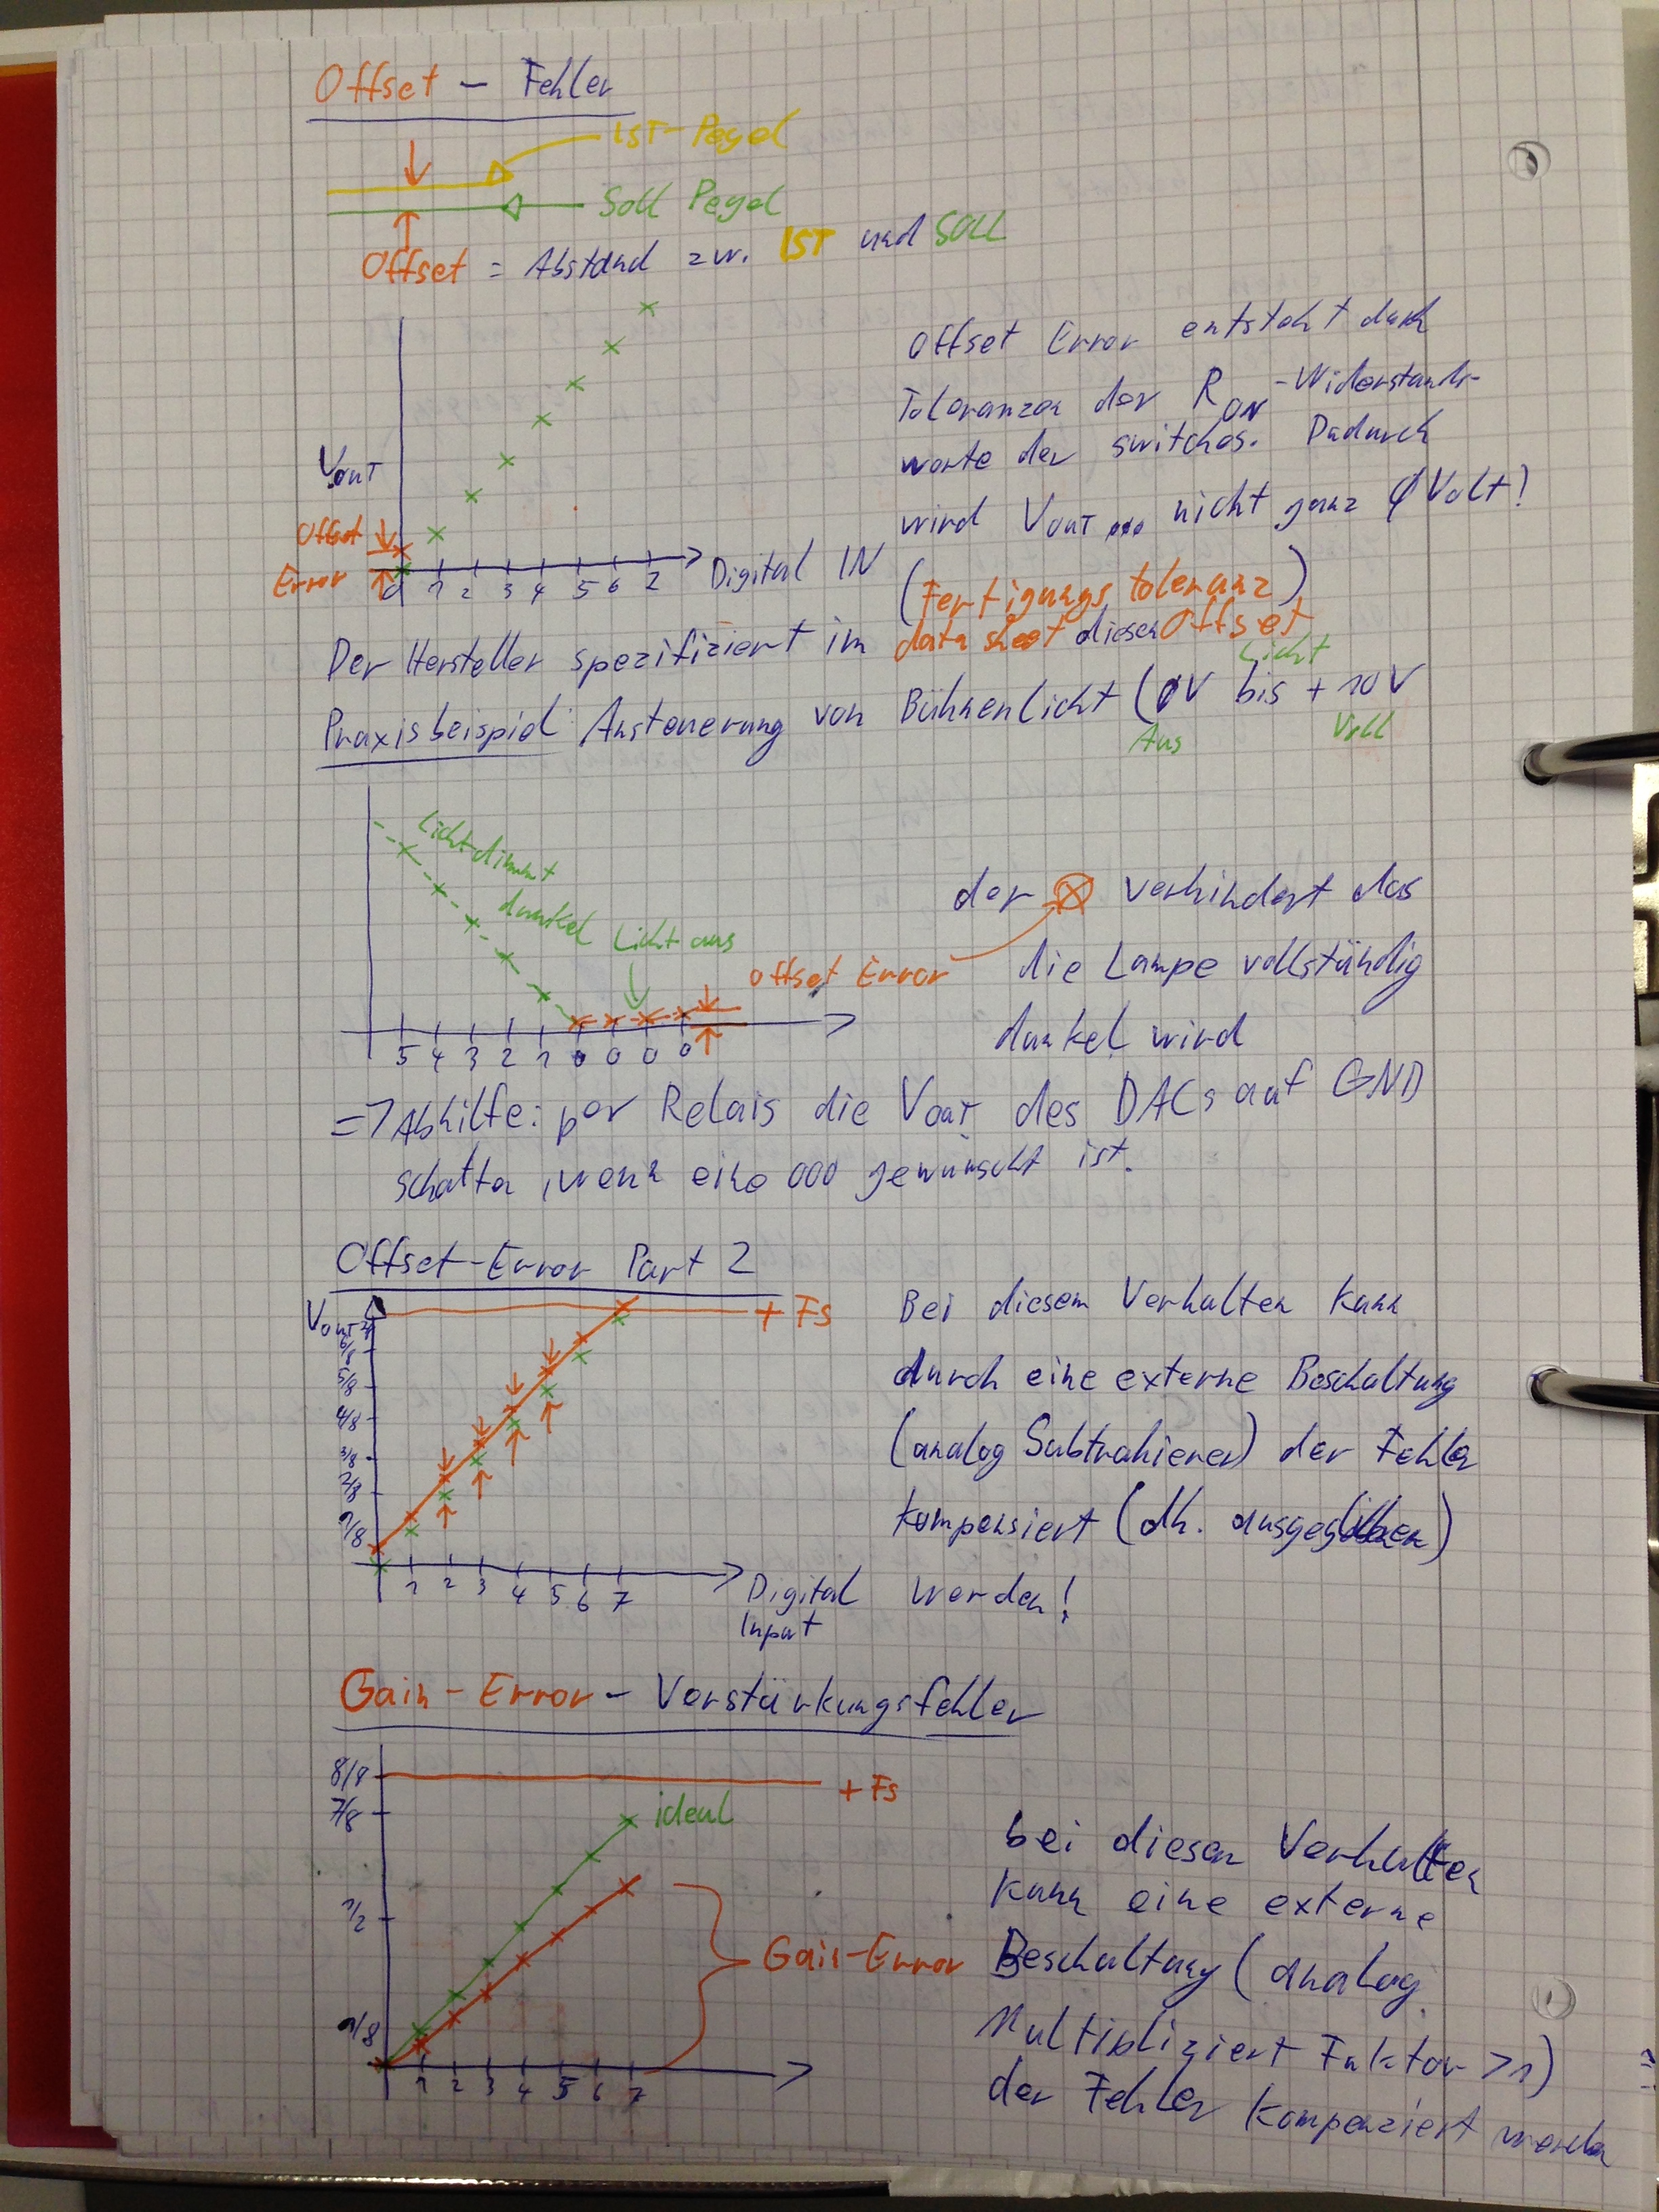 Offset - Fehler
IST-Pegel
Soll Pegel
Offset = Abstand zw. IST und SOLL
Offset Error entsteht durch
Toleranzen der RON-Widerstands-
werte der switches. Dadurch
wird VOUT 000 nicht ganz 0 Volt!
(Fertigungstoleranz)
VOUT
Offset
Error
0 1 2 3 4 5 6 7
Digital IN
Der Hersteller spezifiziert im data sheet diesen Offset
Praxisbeispiel: Ansteuerung von Bühnenlicht (0V bis +10V
Licht
Aus
Voll
Licht dimmt
dunkel
Licht aus
Offset Error
5 4 3 2 1 0 0 0 0
der verhindert das
die Lampe vollständig
dunkel wird
=> Abhilfe: per Relais die VOUT des DACs auf GND
schalten, wenn eine 000 gewünscht ist.
Offset-Error Part 2
VOUT
+ Fs
6/8
5/8
4/8
3/8
2/8
1/8
1 2 3 4 5 6 7
Digital
Input
Bei diesem Verhalten kann
durch eine externe Beschaltung
(analog Subtrahierer) der Fehler
kompensiert (dh. ausgeglichen)
werden!
Gain-Error - Verstärkungsfehler
8/8
+ Fs
7/8
ideal
1/2
Gain-Error
1/8
1 2 3 4 5 6 7
bei diesen Verhalten
kann eine externe
Beschaltung (analog
Multipliziert Faktor >1)
der Fehler kompenziert werden